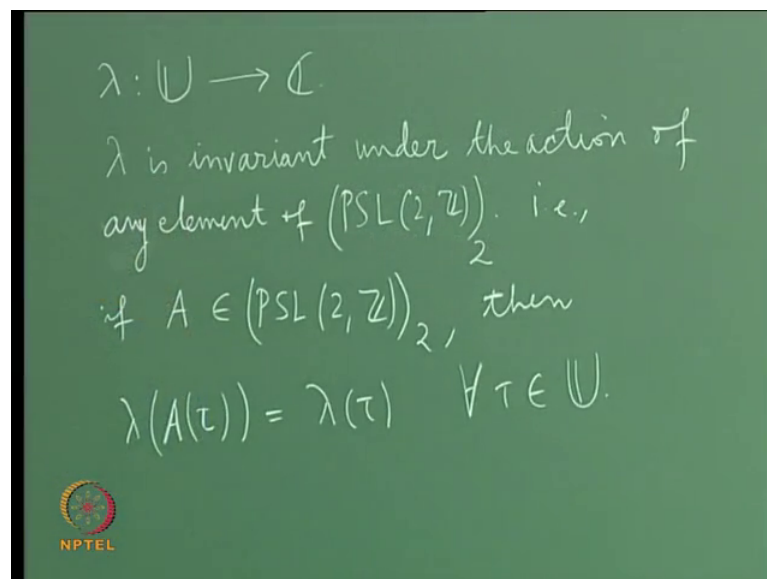 λ : 𝕌 ⟶ ℂ.
λ is invariant under the action of
any element of (PSL(2,ℤ))₂. i.e.,
if A ∈ (PSL(2,ℤ))₂, then
λ(A(τ)) = λ(τ) ∀ τ ∈ 𝕌.
NPTEL